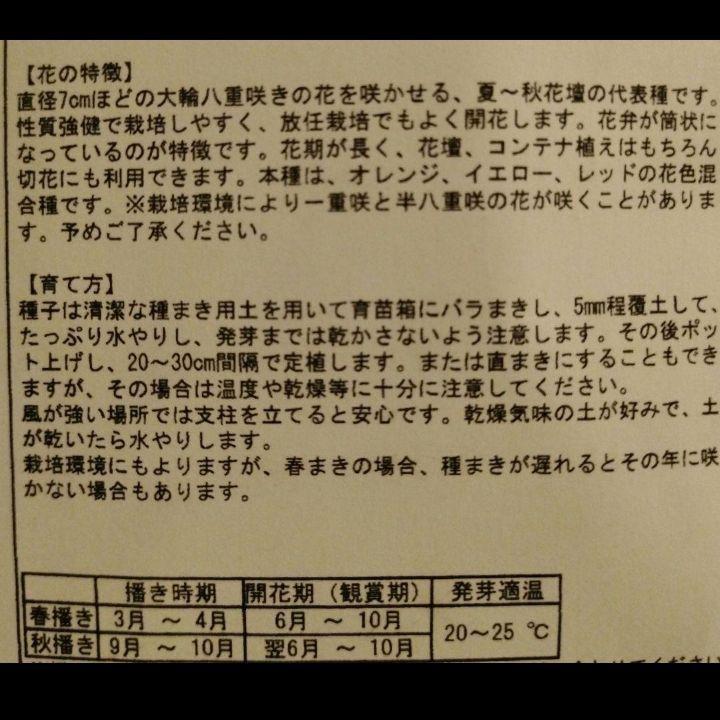 【花の特徴】
直径7cmほどの大輪八重咲きの花を咲かせる、夏～秋花壇の代表種です。
性質強健で栽培しやすく、放任栽培でもよく開花します。花弁が筒状に
なっているのが特徴です。花期が長く、花壇、コンテナ植えはもちろん
切花にも利用できます。本種は、オレンジ、イエロー、レッドの花色混
合種です。※栽培環境により一重咲と半八重咲の花が咲くことがありま
す。予めご了承ください。
【育て方】
種子は清潔な種まき用土を用いて育苗箱にバラまきし、5mm程覆土して、
たっぷり水やりし、発芽までは乾かさないよう注意します。その後ポッ
ト上げし、20～30cm間隔で定植します。または直まきにすることもでき
ますが、その場合は温度や乾燥等に十分に注意してください。
風が強い場所では支柱を立てると安心です。乾燥気味の土が好みで、土
が乾いたら水やりします。
栽培環境にもよりますが、春まきの場合、種まきが遅れるとその年に咲
かない場合もあります。
播き時期 開花期（観賞期） 発芽適温
春播き 3月 ～ 4月 6月 ～ 10月 20～25 ℃
秋播き 9月 ～ 10月 翌6月 ～ 10月